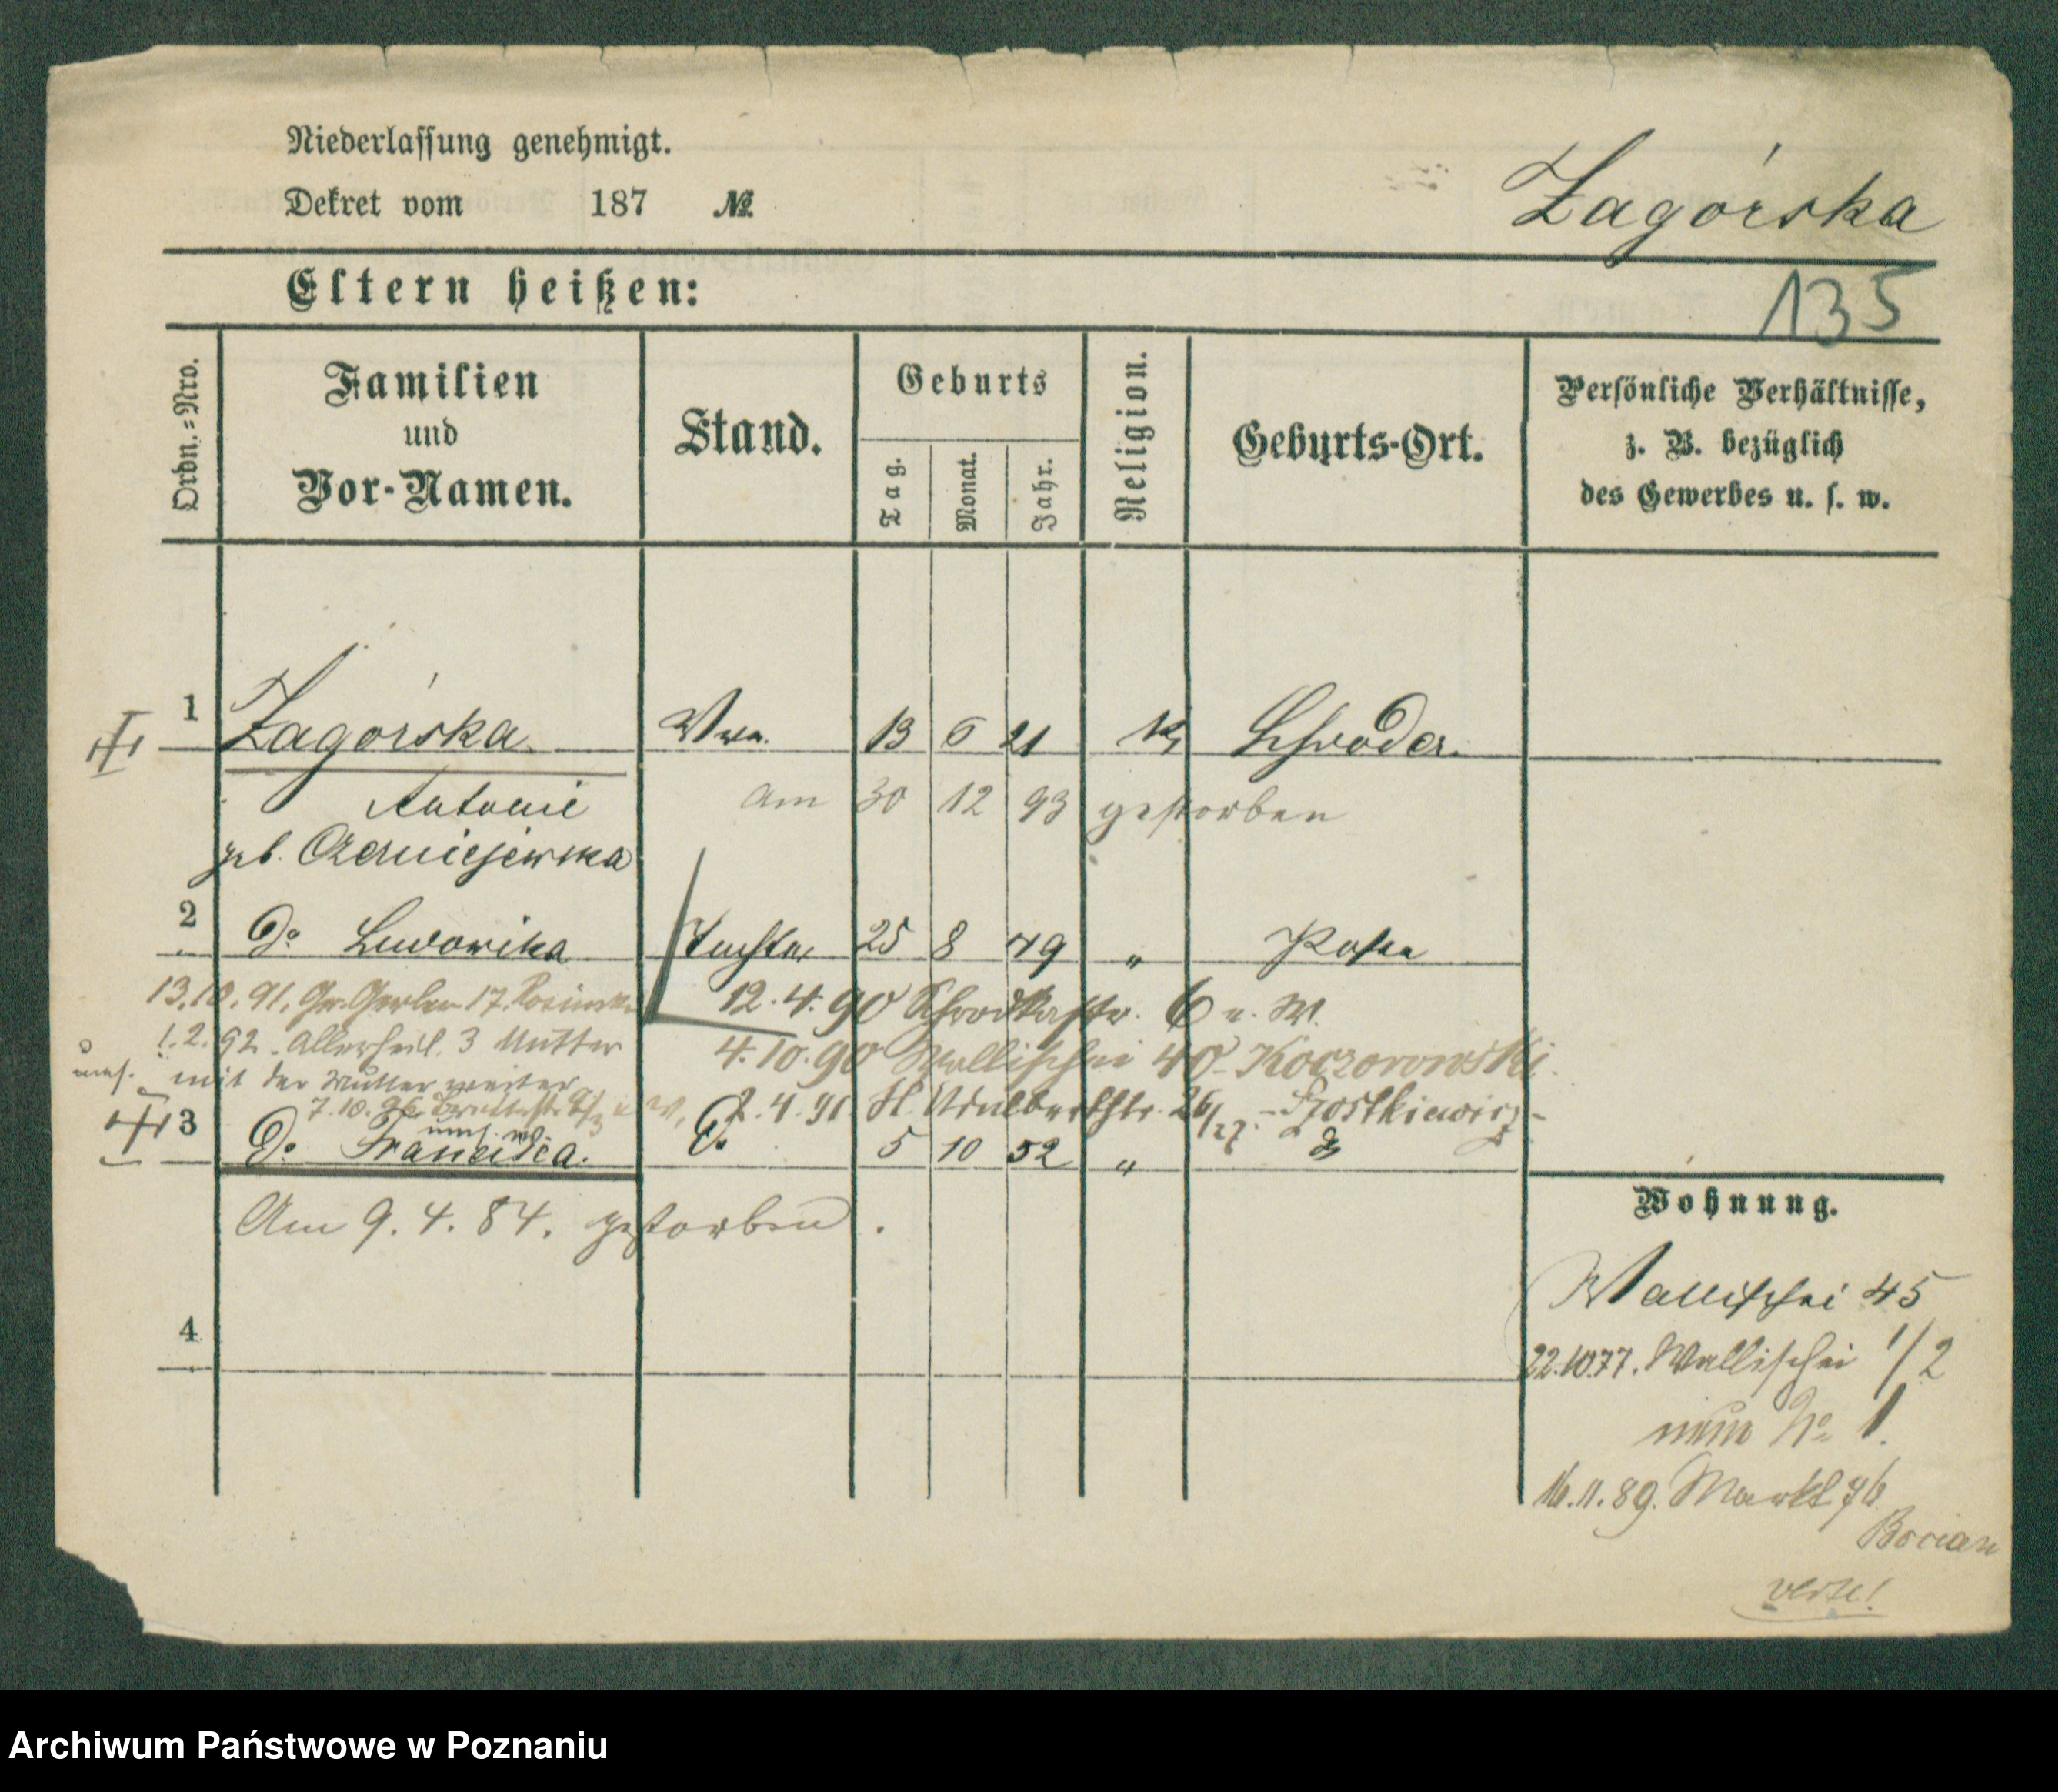 Niederlassung genehmigt.
Dekret vom 187 №
Zagórska
Eltern heißen:
135
Ordn.=Nro.
Familien
und
Vor-Namen.
Stand.
Geburts
Tag.
Monat.
Jahr.
Religion.
Geburts-Ort.
Persönliche Verhältnisse,
z. B. bezüglich
des Gewerbes u. s. w.
1 Zagórska Wwe. 13 6 21 k Schroda.
Antonie am 30 12 93 gestorben
geb. Czerniejewska
2 do Ludowika Tochter 25 8 49 " Posen
13.10.91. Gr. Gerber 17. 12.4.90 Schrodkastr. 6 u. W.
1.2.92. Allerheil. 3 Mutter 4.10.90 Wallischei 40 Koczorowski.
mit der Mutter weiter
7.10. 2.4.91 St. Adalbertstr. 26/27 -Szostkiewicz-
3 do Francisca. do 5 10 52 "
Am 9. 4. 84. gestorben.
4
Wohnung.
Wallischei 45
22.10.77. Wallischei 1/2
nun No 1.
16.11.89. Markt 76
Bocian
verte!
Archiwum Państwowe w Poznaniu